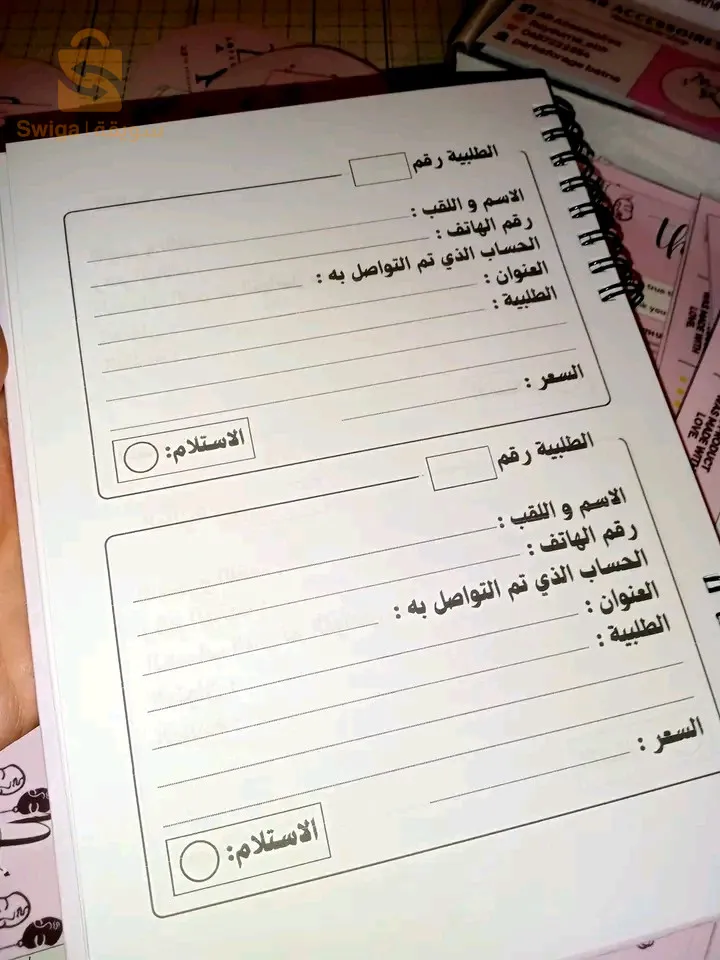 Swiga | سويقة
الطلبية رقم
الاسم و اللقب :
رقم الهاتف :
الحساب الذي تم التواصل به :
العنوان :
الطلبية :
السعر :
الاستلام:
الطلبية رقم
الاسم و اللقب :
رقم الهاتف :
الحساب الذي تم التواصل به :
العنوان :
الطلبية :
السعر :
الاستلام:
ACCESSOIRES
PRODUCT
WAS MADE WITH
LOVE.